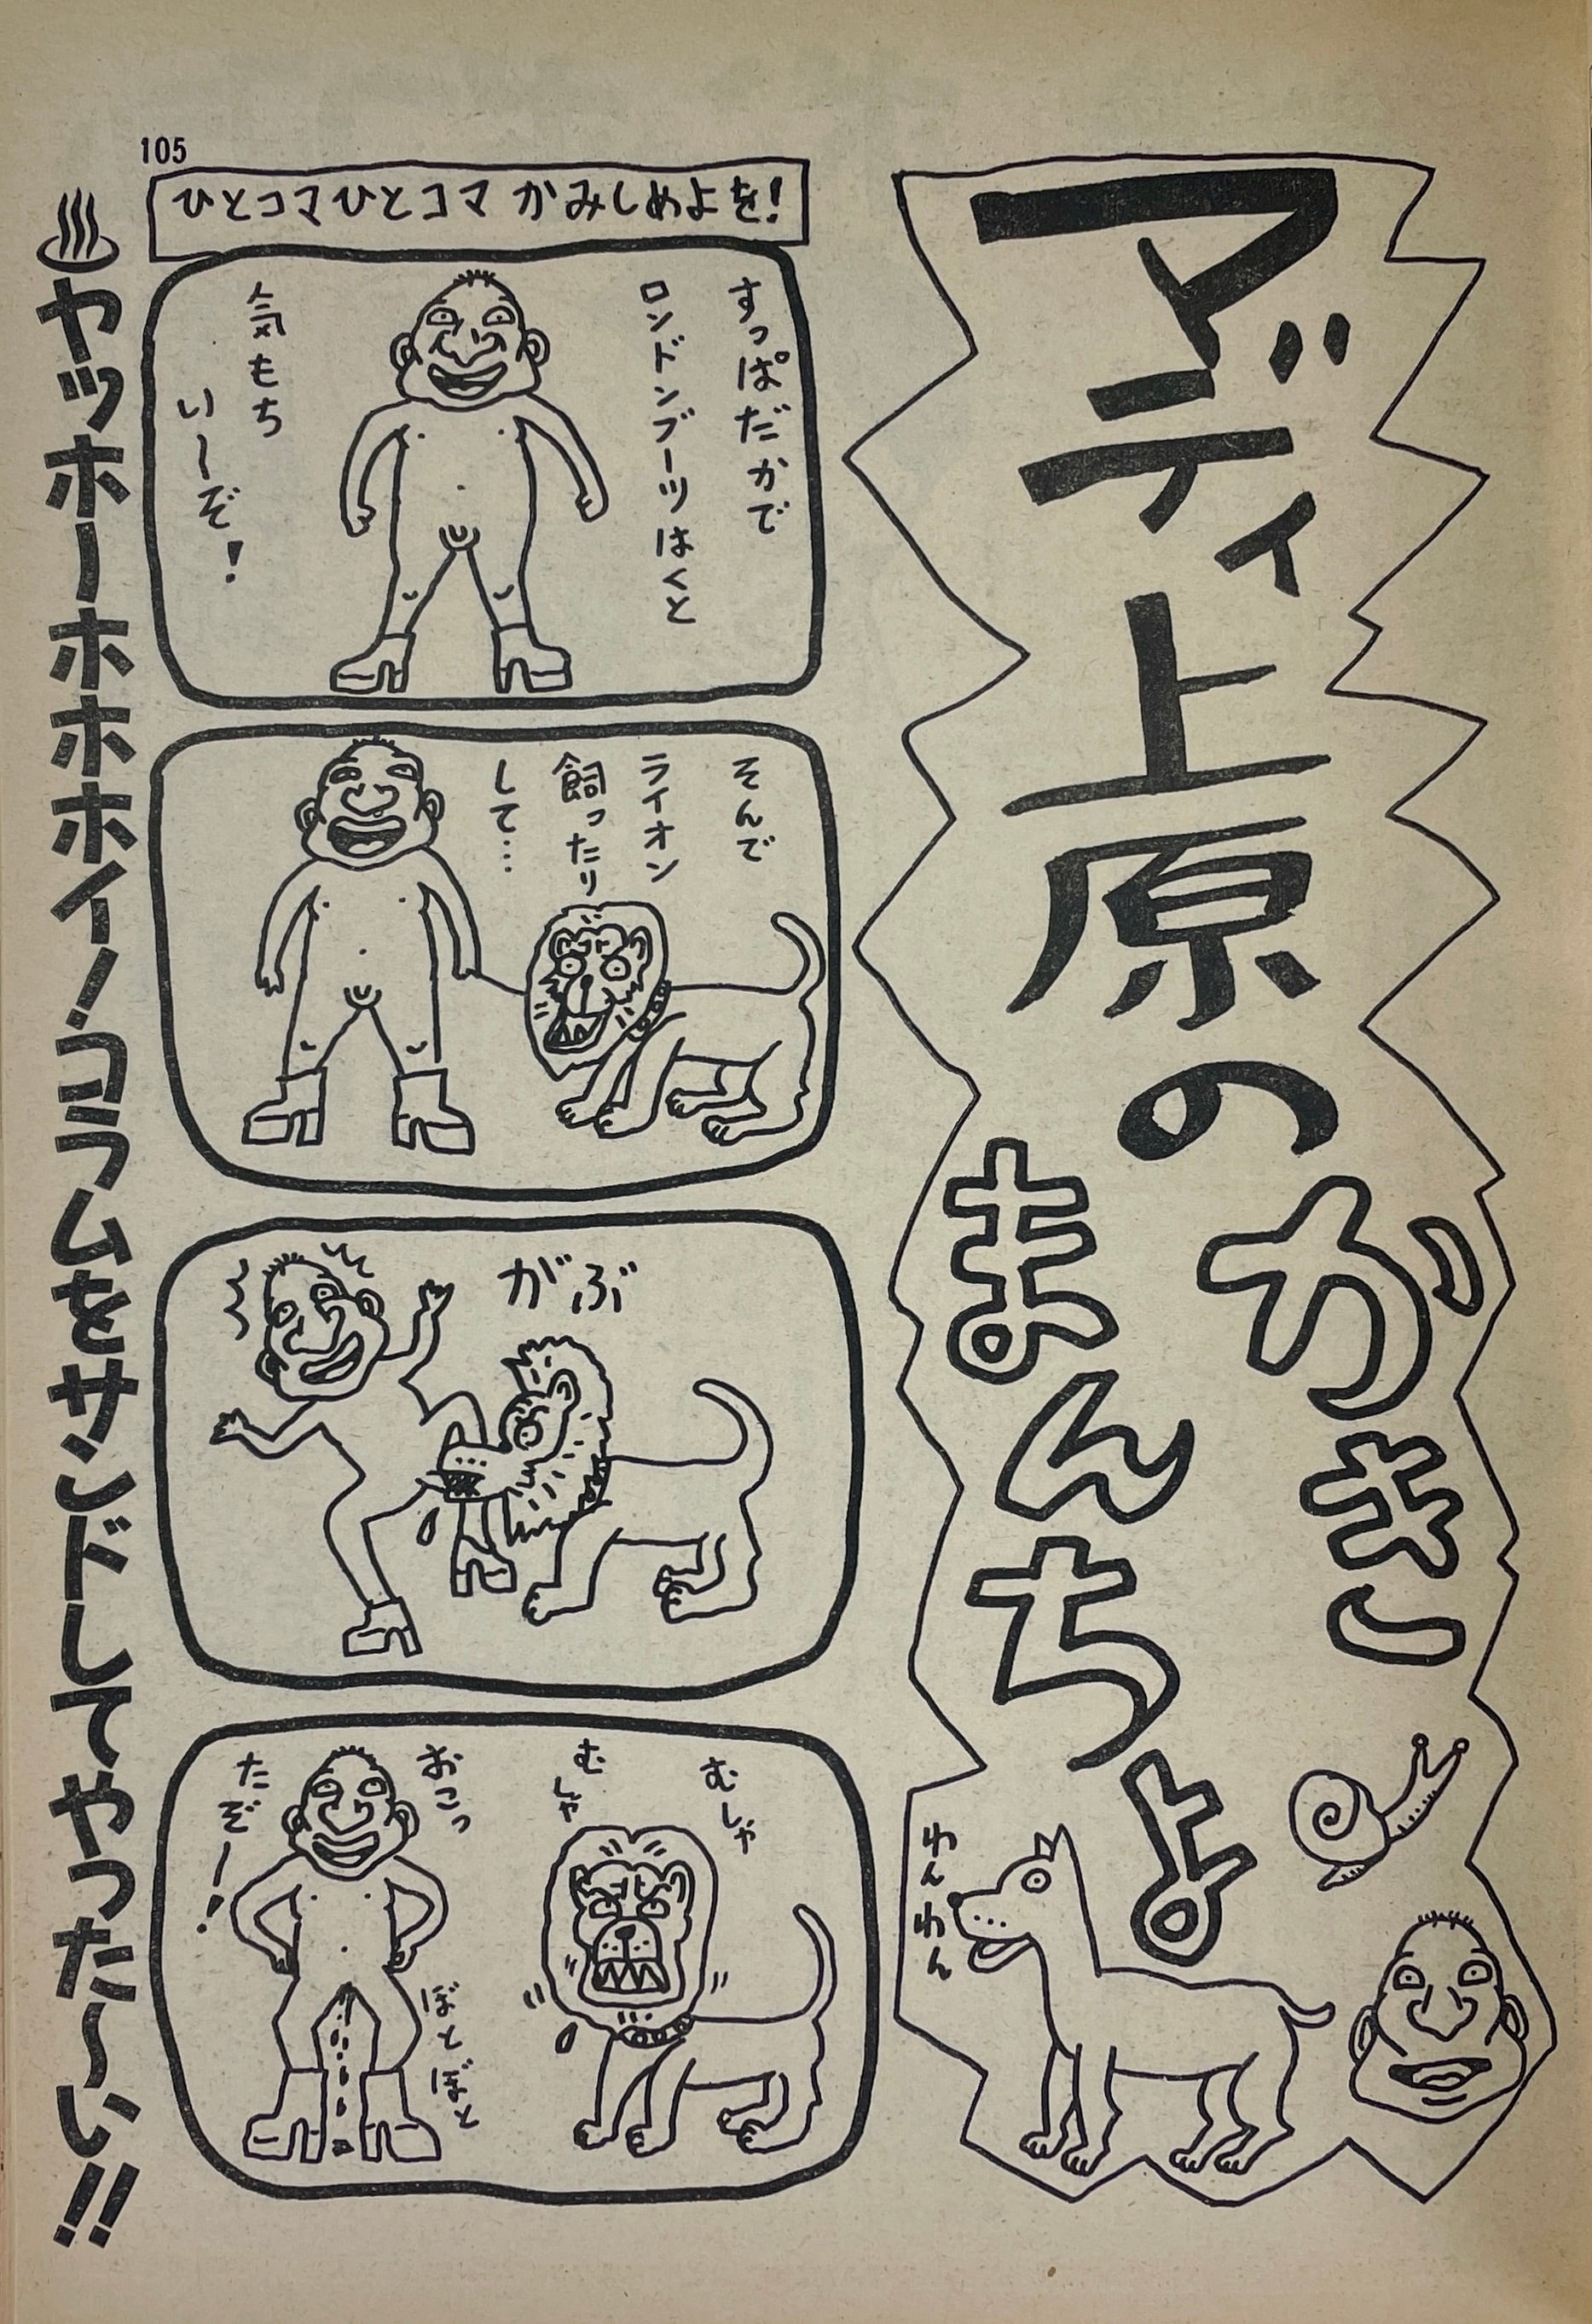 マディ上原の
がきっ
まんちょ
わんわん
105
ひとコマひとコマ かみしめよを!
すっぱだかで
ロンドンブーツはくと
気もち
い〜ぞ!
そんで
ライオン
飼ったり
して…
がぶ
むしゃ
むしゃ
おこっ
たぞー!
ぼとぼと
♨ヤッホーホホホイ!コラムをサンドしてやった〜い!!